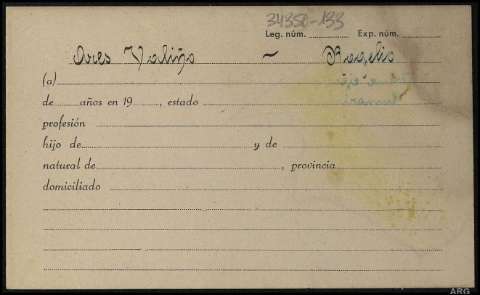 34350-133
Leg. núm. Exp. núm.
Ores Valiño ~ Rogelio
(a)
de años en 19 , estado
profesión
hijo de y de
natural de , provincia
domiciliado
ARG